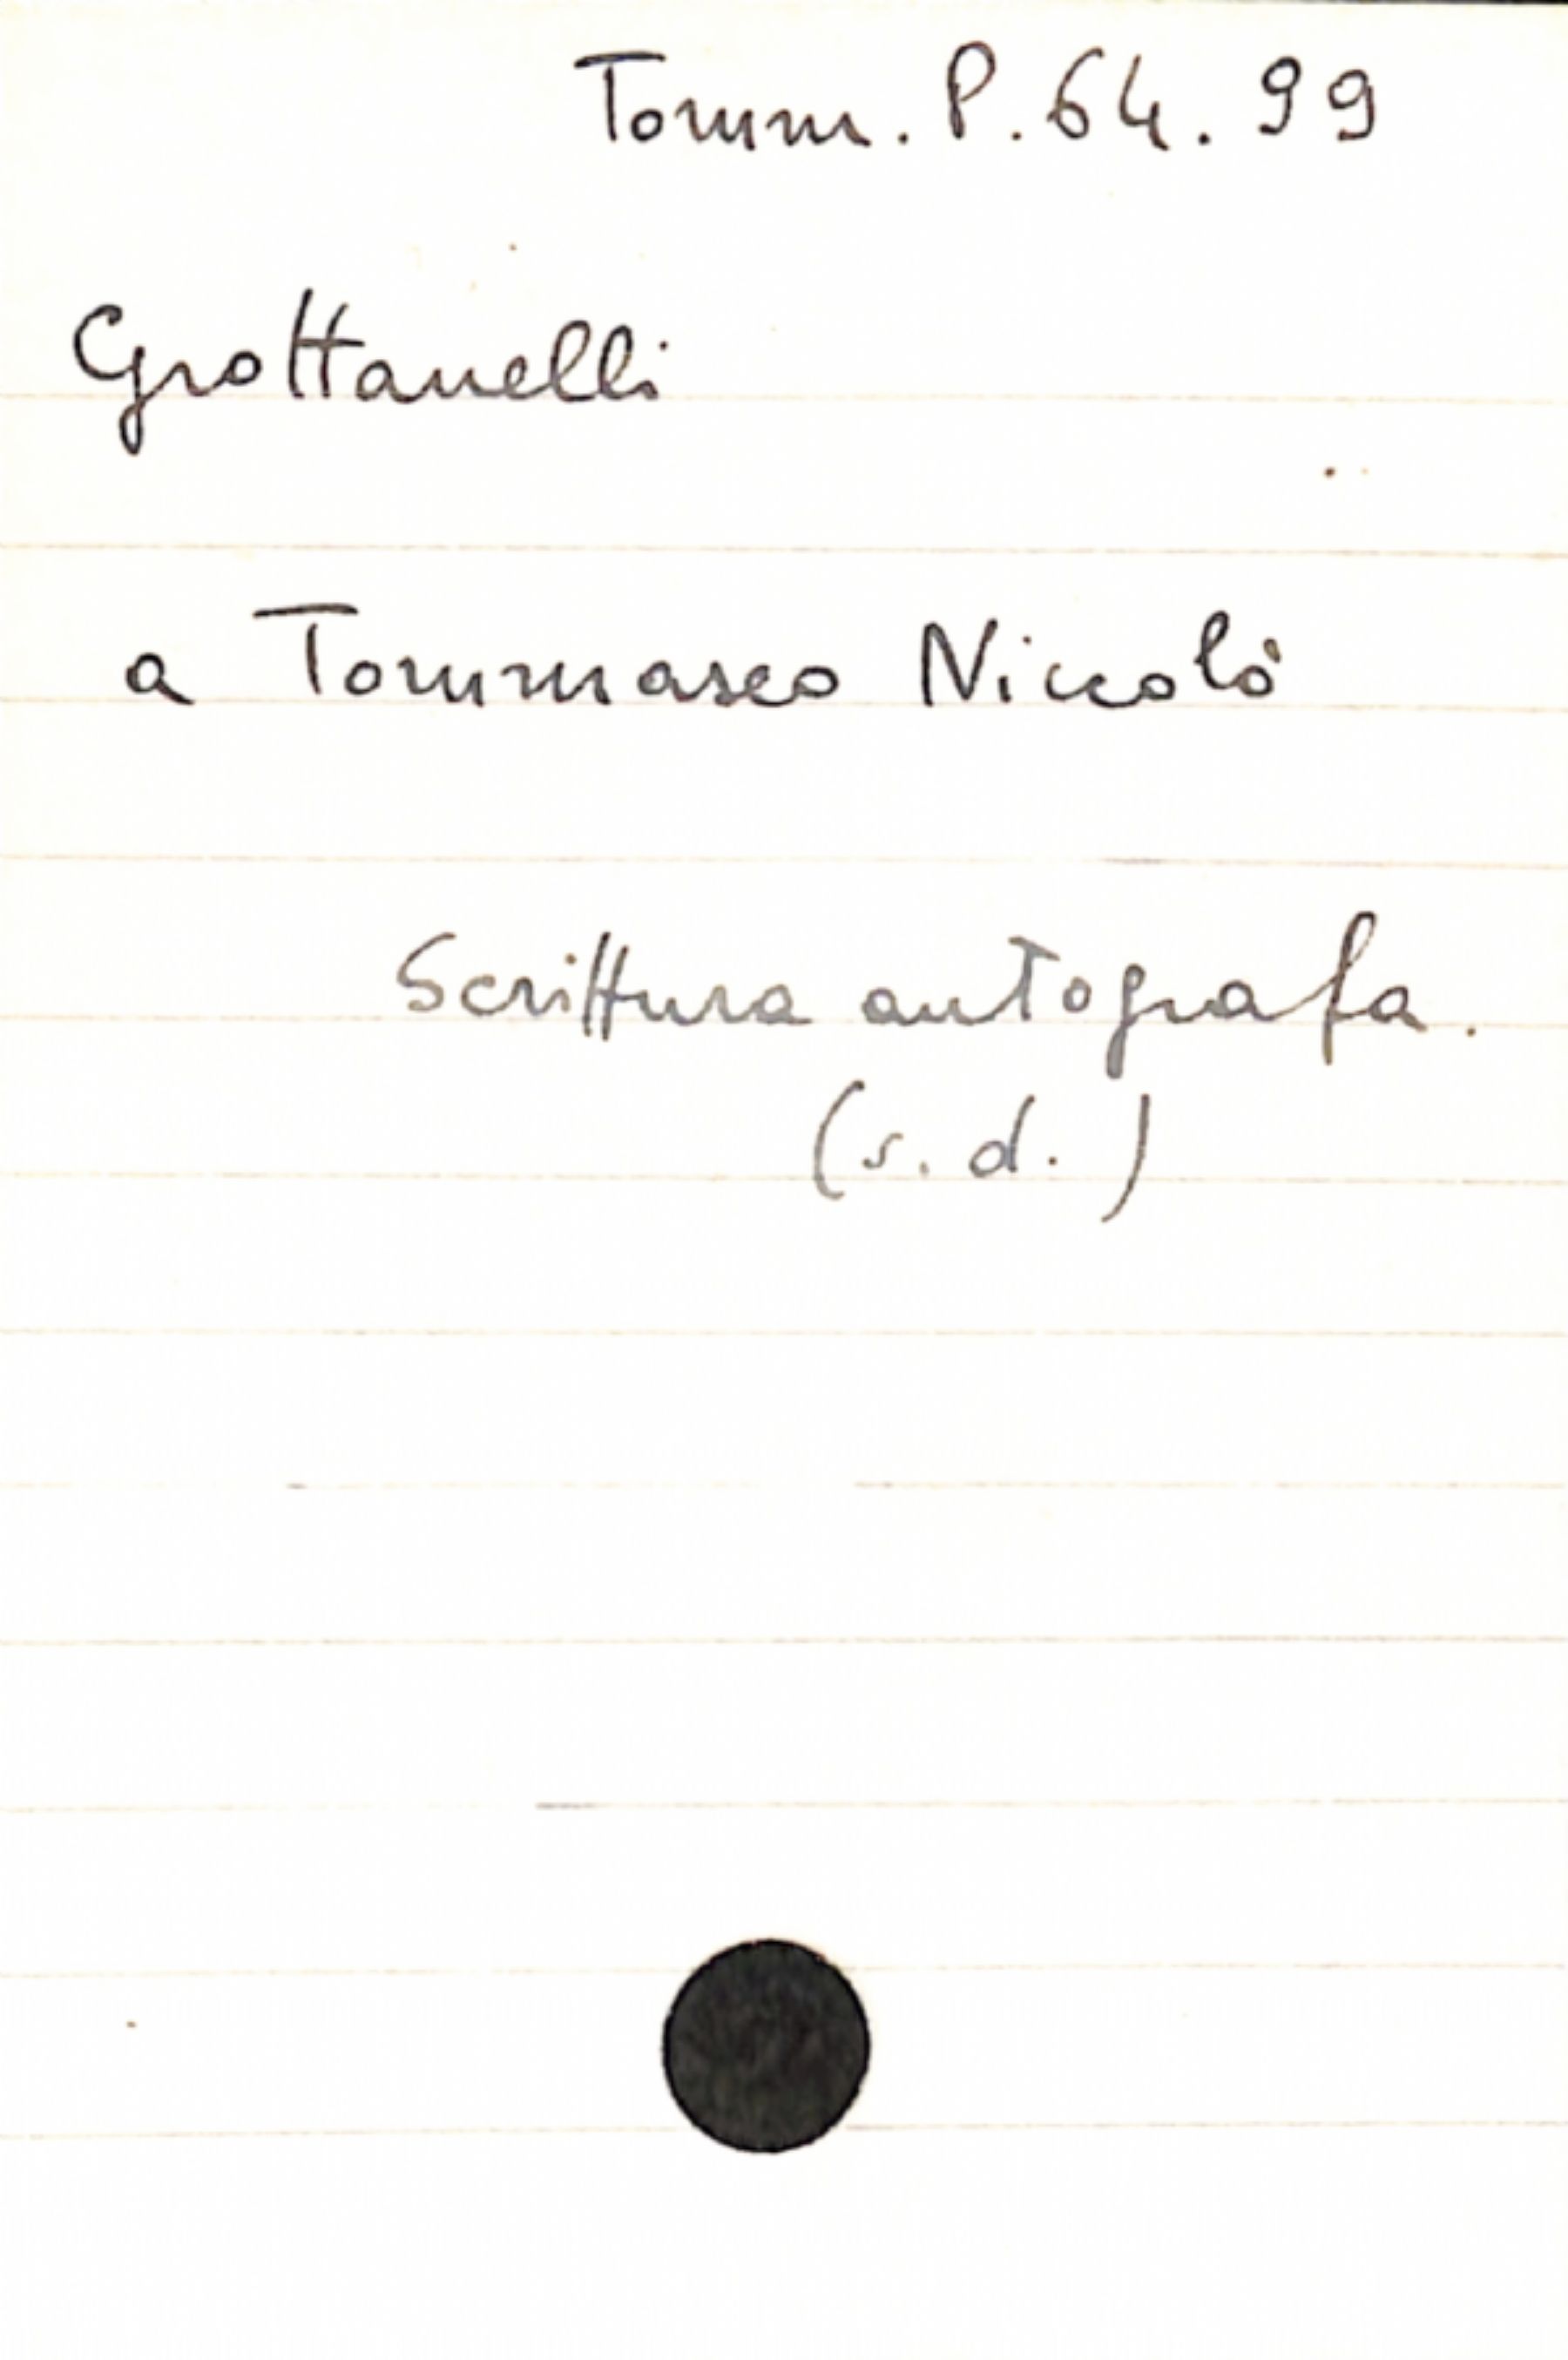 Tomm. P. 64. 99
Grottanelli
a Tommaseo Niccolò
Scrittura autografa.
(s. d.)